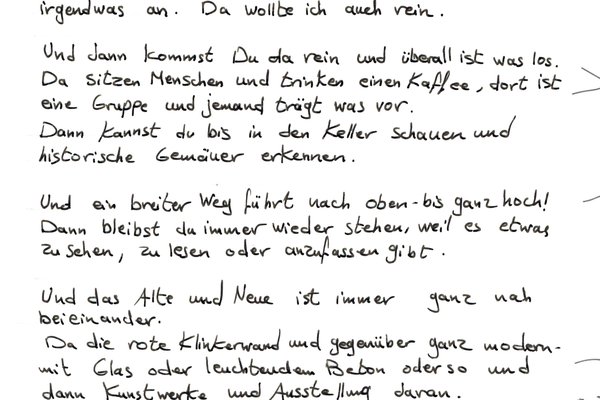 irgendwas an. Da wollte ich auch rein.
Und dann kommst Du da rein und überall ist was los.
Da sitzen Menschen und trinken einen Kaffee, dort ist
eine Gruppe und jemand trägt was vor.
Dann kannst du bis in den Keller schauen und
historische Gemäuer erkennen.
Und ein breiter Weg führt nach oben - bis ganz hoch!
Dann bleibst du immer wieder stehen, weil es etwas
zu sehen, zu lesen oder anzufassen gibt.
Und das Alte und Neue ist immer ganz nah
beieinander.
Da die rote Klinkerwand und gegenüber ganz modern -
mit Glas oder leuchtendem Beton oder so und
dann Kunstwerke und Ausstellung daran.